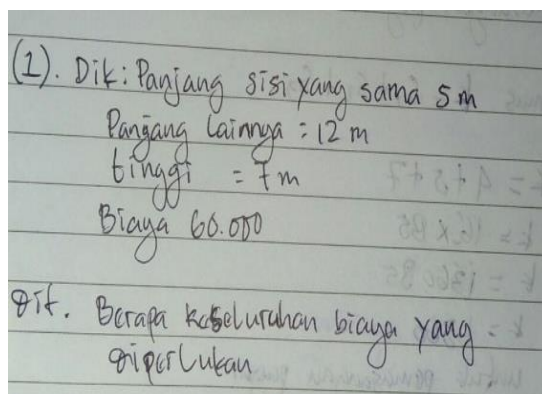 (1). Dik: Panjang sisi yang sama 5 m
Panjang lainnya = 12 m
tinggi = 7 m
Biaya 60.000
Dit. Berapa keseluruhan biaya yang
diperlukan